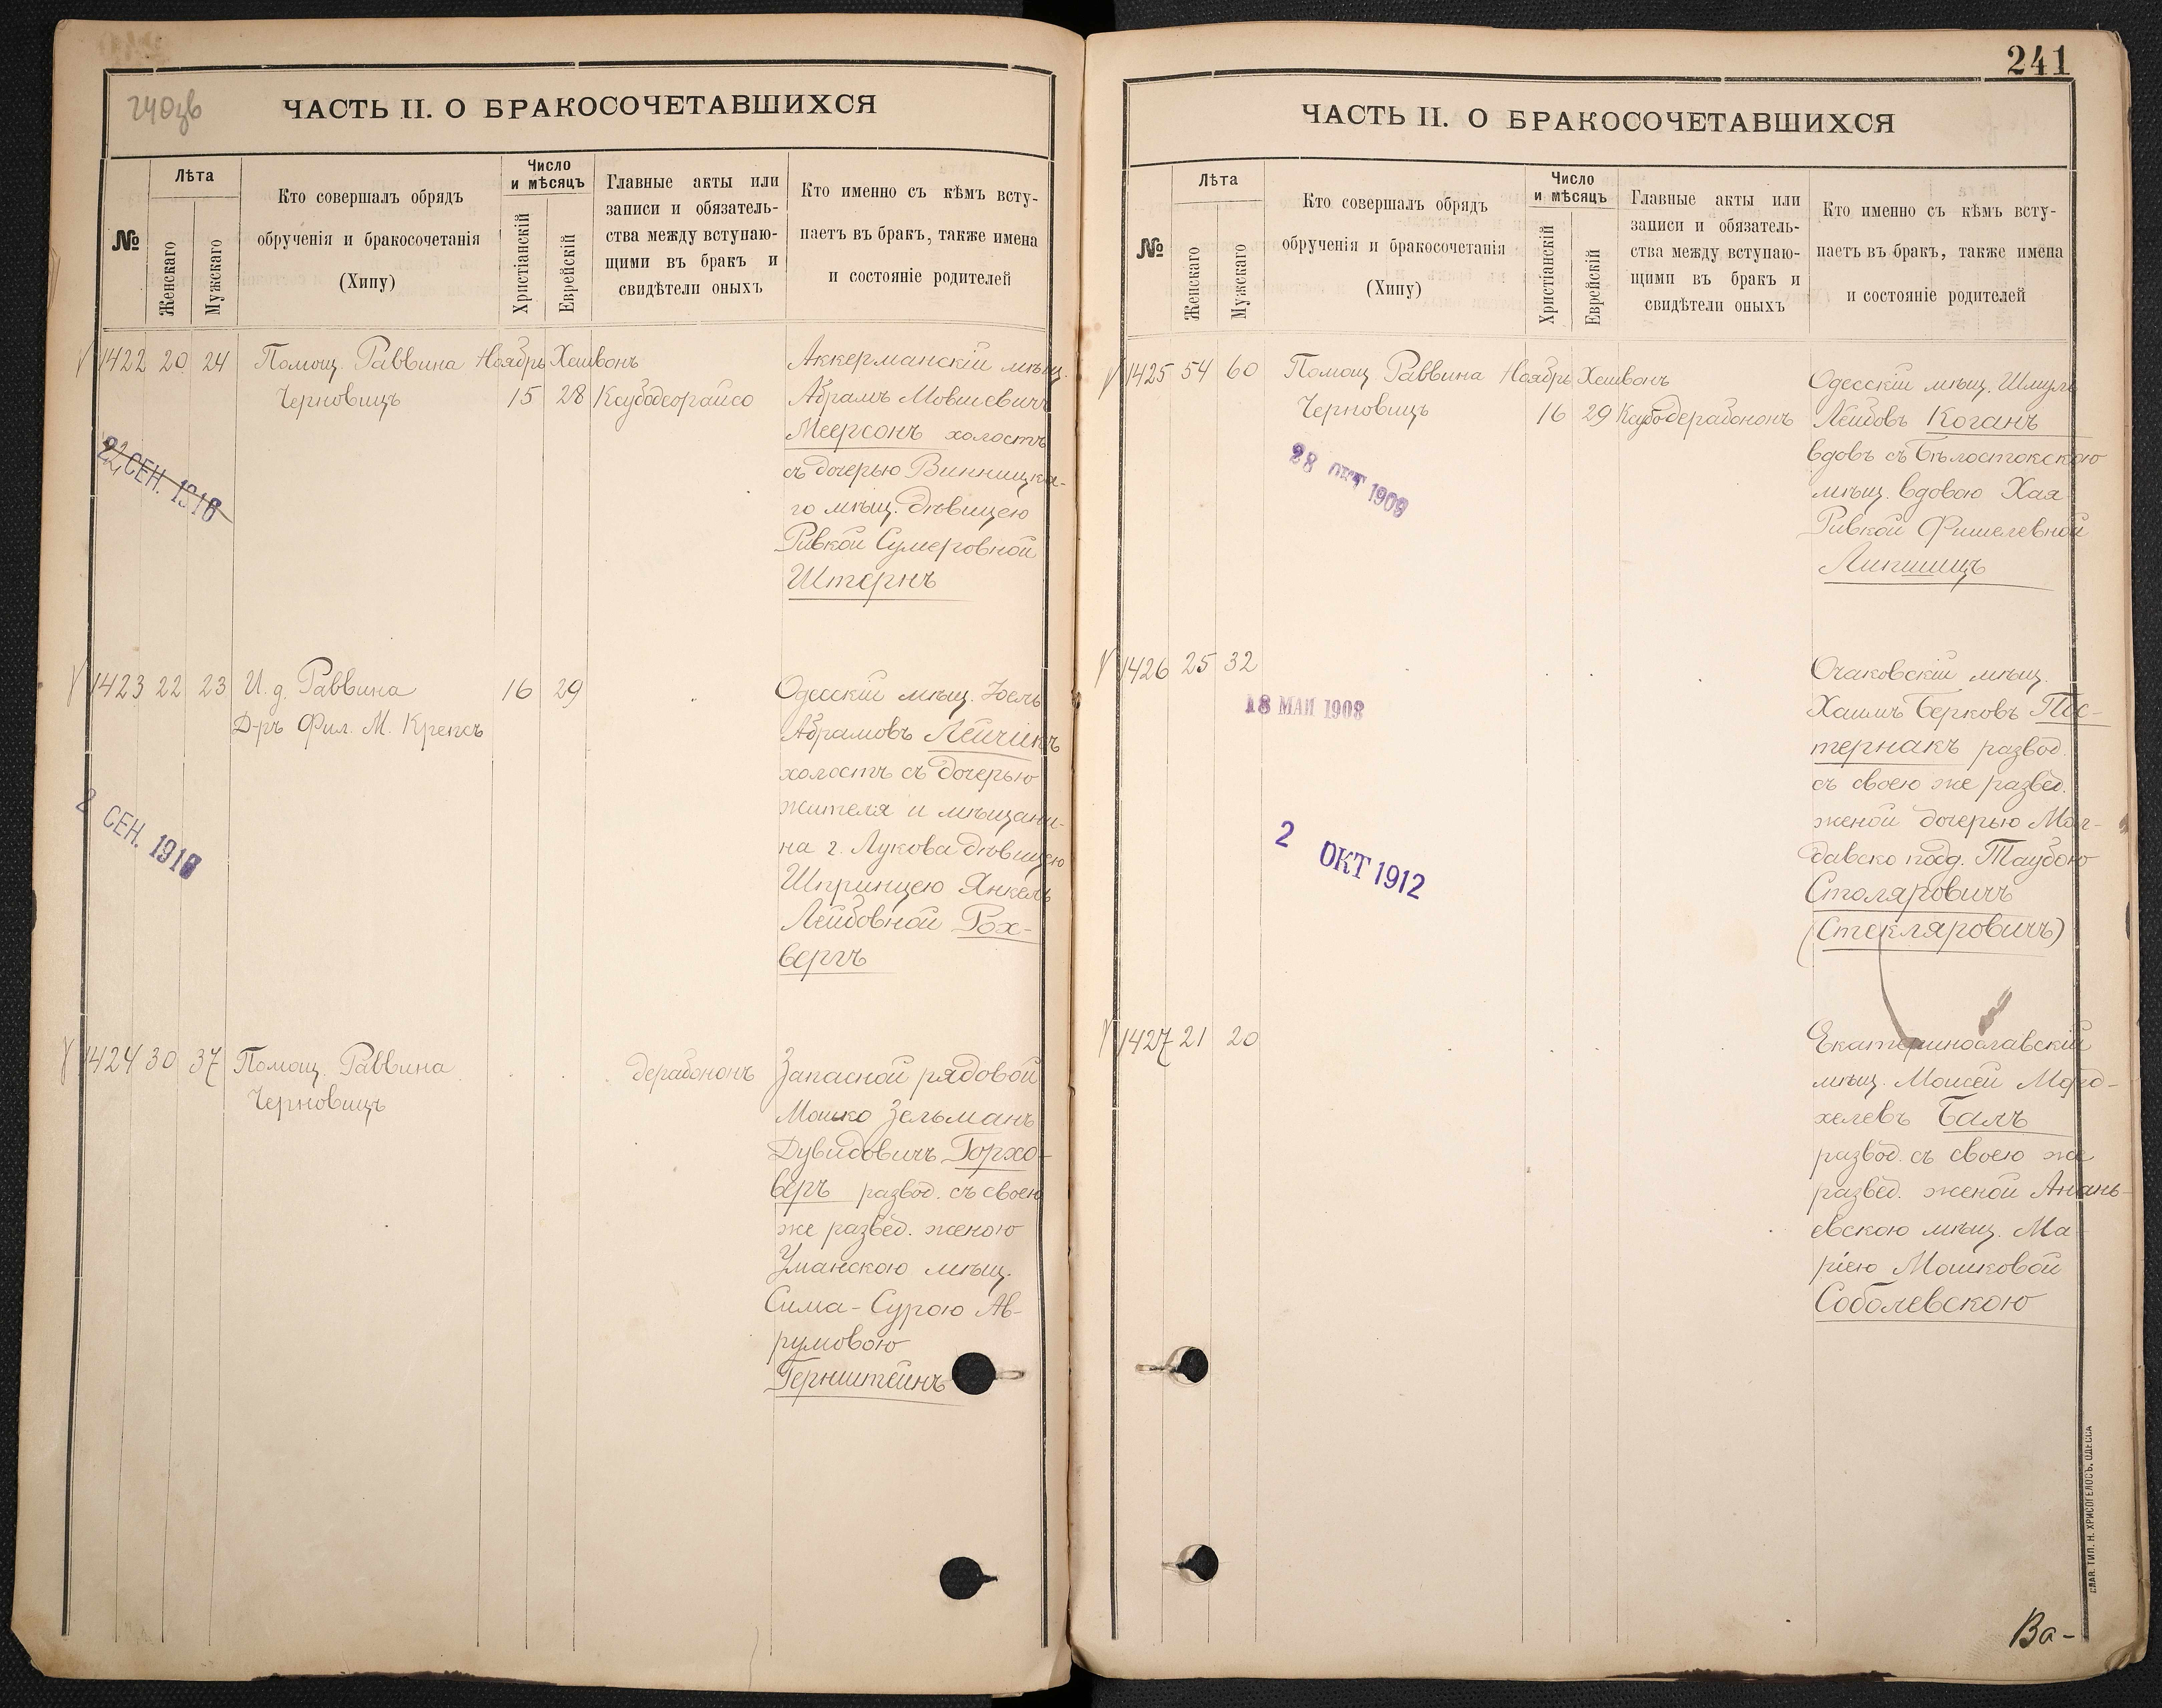 240зв
ЧАСТЬ II. О БРАКОСОЧЕТАВШИХСЯ
№
Лѣта
Женскаго
Мужскаго
Кто совершалъ обрядъ
обрученія и бракосочетанія
(Хипу)
Число
и мѣсяцъ
Христіанскій
Еврейскій
Главные акты или
записи и обязатель-
ства между вступаю-
щими въ бракъ и
свидѣтели оныхъ
Кто именно съ кѣмъ всту-
паетъ въ бракъ, также имена
и состояніе родителей
1422 20 24 Помощ. Раввина Ноябрь Хешвонъ
Черновицъ 15 28 Ксубодеорайсо
Аккерманскій мѣщ.
Абрамъ Мовшевичъ
Меерсонъ холостъ
съ дочерью Винницка-
го мѣщ. дѣвицею
Ривкой Сумеровной
Штернъ
СЕН. 1910
1423 22 23 И. д. Раввина 16 29
Д-ръ Фил. М. Крепсъ
Одесскій мѣщ. Іоель
Абрамовъ Лейчикъ
холостъ съ дочерью
жителя и мѣщани-
на г. Лукова дѣвицею
Шпринцею Янкель
Лейбовной Рох-
вергъ
2 СЕН. 1910
1424 30 37 Помощ. Раввина дерабононъ
Черновицъ
Запасной рядовой
Мошко Зельманъ
Дувидовичъ Горхо-
веръ развод. съ своею
же развед. женою
Уманскою мѣщ.
Сима-Сурою Ав-
румовою
Гернштейнъ
241
ЧАСТЬ II. О БРАКОСОЧЕТАВШИХСЯ
№
Лѣта
Женскаго
Мужскаго
Кто совершалъ обрядъ
обрученія и бракосочетанія
(Хипу)
Число
и мѣсяцъ
Христіанскій
Еврейскій
Главные акты или
записи и обязатель-
ства между вступаю-
щими въ бракъ и
свидѣтели оныхъ
Кто именно съ кѣмъ всту-
паетъ въ бракъ, также имена
и состояніе родителей
1425 54 60 Помощ Раввина Ноябрь Хешвонъ
Черновицъ 16 29 Ксубодерабононъ
Одесскій мѣщ. Шмуль
Лейбовъ Коганъ
вдовъ съ Бѣлостокскою
мѣщ. вдовою Хая
Ривкой Фишелевной
Липшицъ
28 ОКТ 1909
1426 25 32
Очаковскій мѣщ.
Хаимъ Берковъ Пос-
тернакъ развод.
съ своею же развед.
женой дочерью Мол-
давско подд. Таубою
Столяровичъ
(Стекляровичъ)
18 МАИ 1908
2 ОКТ 1912
1427 21 20
Екатеринославскій
мѣщ. Моисей Морд-
хелевъ Балъ
развод. съ своею же
развед. женой Ананъ-
евскою мѣщ. Ма-
ріею Мошковой
Соболевскою
СЛАВ. ТИП. Н. ХРИСОГЕЛОСЪ. ОДЕССА
Ва-